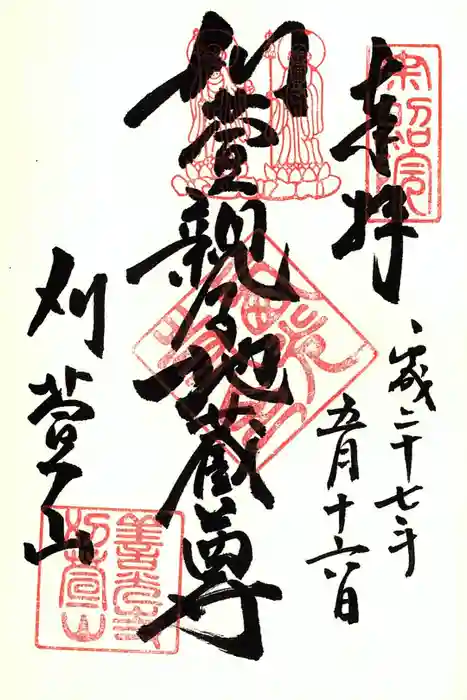 奉拝
平成二十七年
五月十六日
刈萱親子地蔵尊
刈萱山
善光寺
刈萱山